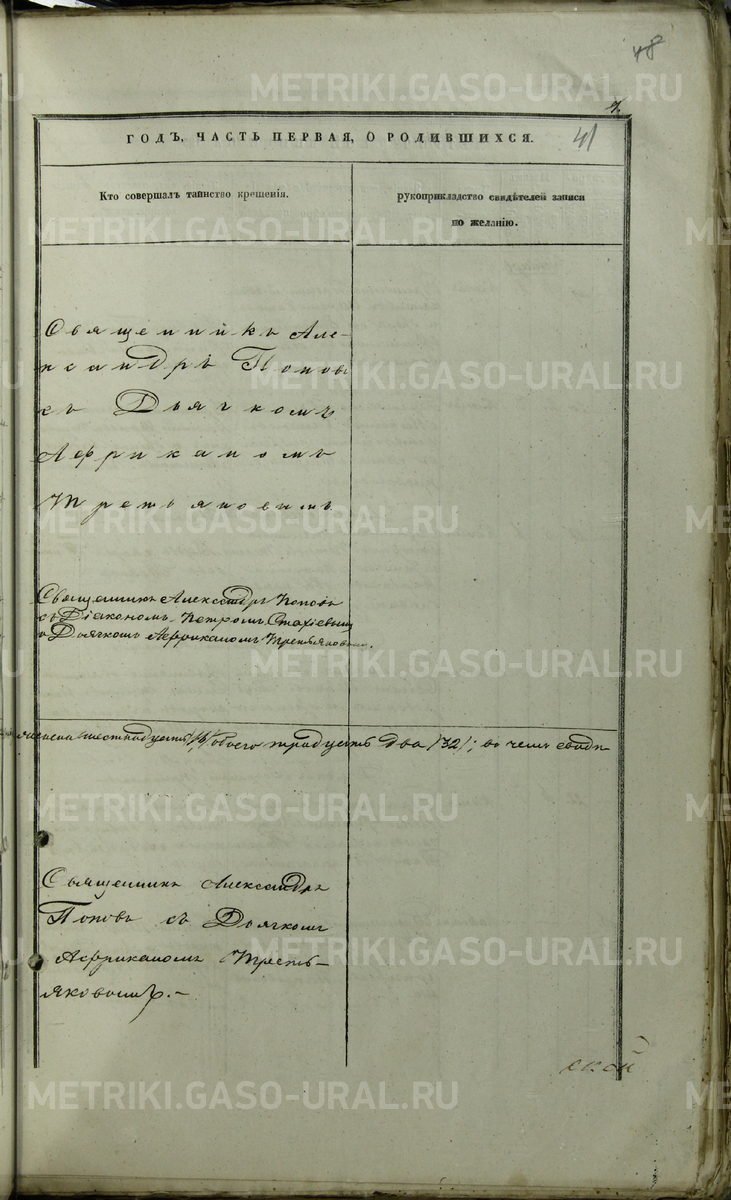 48
41
ГОДЪ, ЧАСТЬ ПЕРВАЯ, О РОДИВШИХСЯ.
Кто совершалъ таинство крещенія.
рукоприкладство свидѣтелей записи
по желанію.
Священникъ Але-
ксандръ Поповъ
съ Дьячкомъ
Африканомъ
Третьяковымъ
Священникъ Александръ Поповъ
съ Діакономъ Петромъ
и Дьячкомъ Африканомъ Третьяковымъ.
шестнадцать /16/, обоего тридцать два /32/; въ чемъ свидѣ
Священникъ Александръ
Поповъ съ Дьячкомъ
Африканомъ Треть-
яковымъ.-
ской
METRIKI.GASO-URAL.RU